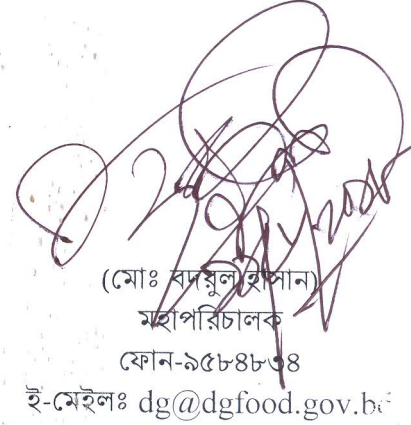 (মোঃ বদরুল হাসান)
মহাপরিচালক
ফোন-৯৫৮৪৮৩৪
ই-মেইলঃ dg@dgfood.gov.bd